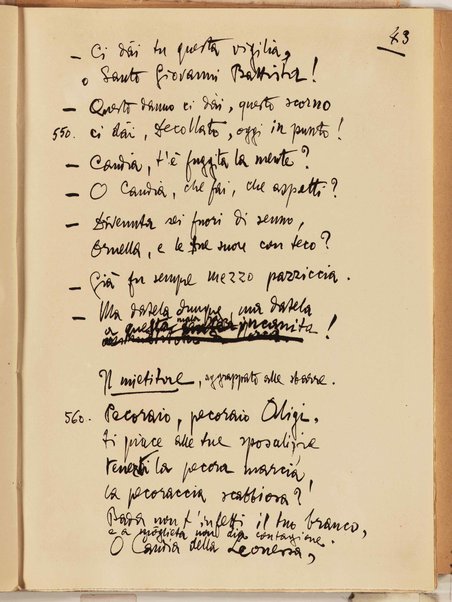 43
— Ci dài tu questa vigilia,
o Santo Giovanni Battista!
— Questo danno ci dài, questo scorno
550. ci dài, Decollato, oggi in punto!
— Candia, t'è fuggita la mente?
— O Candia, che fai, che aspetti?
— Divenuta sei fuori di senno,
Ornella, e le due suore con teco?
— Già fu sempre mezzo pazziccia.
— Ma datela dunque, ma datela
a questa mala incanita!
Il mietitore, aggrappato alle sbarre.
560. Pecoraio, pecoraio Aligi,
ti piace alle tue sposalizie
tenerti la pecora marcia,
la pecoraccia scabbiosa?!
Bada non t'infetti il tuo branco,
e a mogliata non dia contagione.
O Candia della Leonessa,